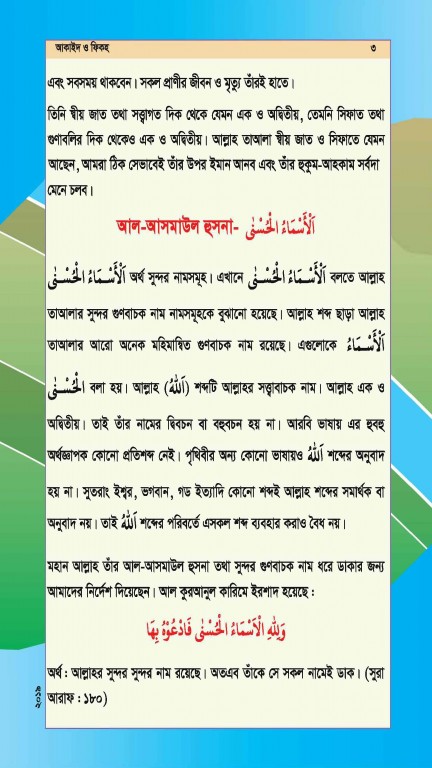 আকাইদ ও ফিকহ ৩
এবং সবসময় থাকবেন। সকল প্রাণীর জীবন ও মৃত্যু তাঁরই হাতে।
তিনি স্বীয় জাত তথা সত্ত্বাগত দিক থেকে যেমন এক ও অদ্বিতীয়, তেমনি সিফাত তথা
গুণাবলির দিক থেকেও এক ও অদ্বিতীয়। আল্লাহ তাআলা স্বীয় জাত ও সিফাতে যেমন
আছেন, আমরা ঠিক সেভাবেই তাঁর উপর ইমান আনব এবং তাঁর হুকুম-আহকাম সর্বদা
মেনে চলব।
আল-আসমাউল হুসনা- اَلْأَسْمَاءُ الْحُسْنٰى
اَلْأَسْمَاءُ الْحُسْنٰى অর্থ সুন্দর নামসমূহ। এখানে اَلْأَسْمَاءُ الْحُسْنٰى বলতে আল্লাহ
তাআলার সুন্দর গুণবাচক নাম নামসমূহকে বুঝানো হয়েছে। আল্লাহ শব্দ ছাড়া আল্লাহ
তাআলার আরো অনেক মহিমান্বিত গুণবাচক নাম রয়েছে। এগুলোকে اَلْأَسْمَاءُ
الْحُسْنٰى বলা হয়। আল্লাহ (اَللهُ) শব্দটি আল্লাহর সত্ত্বাবাচক নাম। আল্লাহ এক ও
অদ্বিতীয়। তাই তাঁর নামের দ্বিবচন বা বহুবচন হয় না। আরবি ভাষায় এর হুবহু
অর্থজ্ঞাপক কোনো প্রতিশব্দ নেই। পৃথিবীর অন্য কোনো ভাষায়ও اَللهُ শব্দের অনুবাদ
হয় না। সুতরাং ঈশ্বর, ভগবান, গড ইত্যাদি কোনো শব্দই আল্লাহ শব্দের সমার্থক বা
অনুবাদ নয়। তাই اَللهُ শব্দের পরিবর্তে এসকল শব্দ ব্যবহার করাও বৈধ নয়।
মহান আল্লাহ তাঁর আল-আসমাউল হুসনা তথা সুন্দর গুণবাচক নাম ধরে ডাকার জন্য
আমাদের নির্দেশ দিয়েছেন। আল কুরআনুল কারিমে ইরশাদ হয়েছে :
وَلِلهِ الْاَسْمَاءُ الْحُسْنٰى فَادْعُوْهُ بِهَا
অর্থ : আল্লাহর সুন্দর সুন্দর নাম রয়েছে। অতএব তাঁকে সে সকল নামেই ডাক। (সুরা
আরাফ : ১৮০)
২০১৯